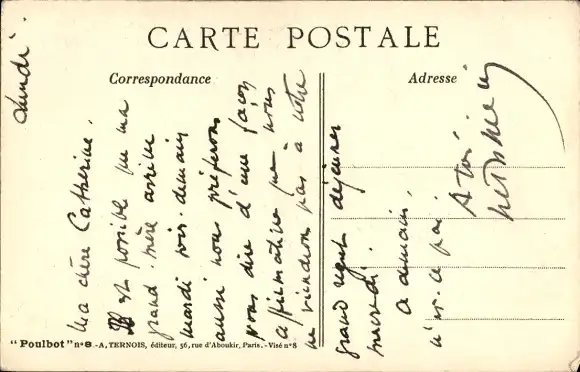 CARTE POSTALE
Correspondance
Adresse
Lundi.
Ma chère Catherine,
Il est possible que ma
grand-mère arrive
mardi soir. demain
aussi nous préférons
vous dire d'une façon
affirmative que nous
ne viendrons pas à notre
grand regret déjeuner
mercredi.
A demain,
n'est-ce pas.
A toi,
"Poulbot" n° 8 -A, TERNOIS, éditeur, 56, rue d'Aboukir, Paris. - Visé n° 8